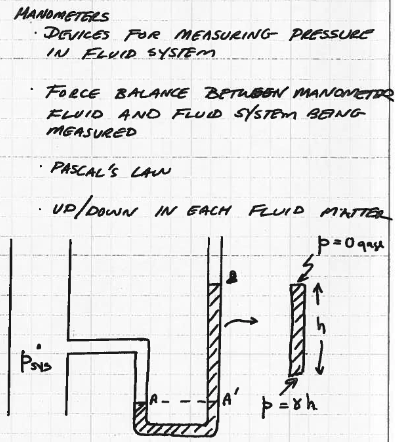 MANOMETERS
· DEVICES FOR MEASURING PRESSURE
IN FLUID SYSTEM
· FORCE BALANCE BETWEEN MANOMETER
FLUID AND FLUID SYSTEM BEING
MEASURED
· PASCAL'S LAW
· UP/DOWN IN EACH FLUID MATTER
p=0 gage
B
h
Psys
A
A'
p=γh